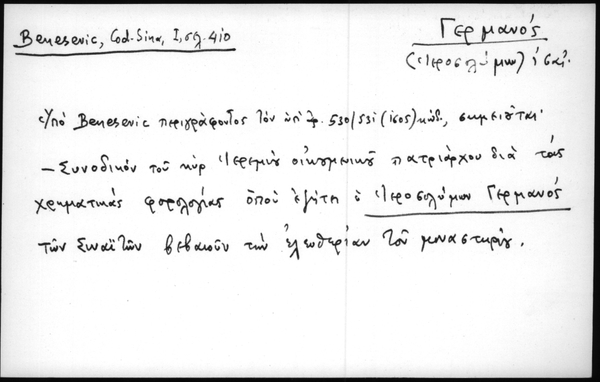 Benesevic, Cod. Sina, I, σελ. 410
Γερμανός
(Ἱεροσολύμων) ις΄ αἰ.
Ὑπό Benesevic περιγράφοντος τόν ὑπ' ἀρ. 530/531 (1605) κώδ., σημειοῦται·
– Συνοδικόν τοῦ κύρ Ἱερεμίου οἰκουμενικοῦ πατριάρχου διά τάς
χρηματικάς φορολογίας ὁποὺ ἐζήτει ὁ Ἱεροσολύμων Γερμανός
τῶν Σιναϊτῶν βεβαιοῦν τήν ἐλευθερίαν τοῦ μοναστηρίου.